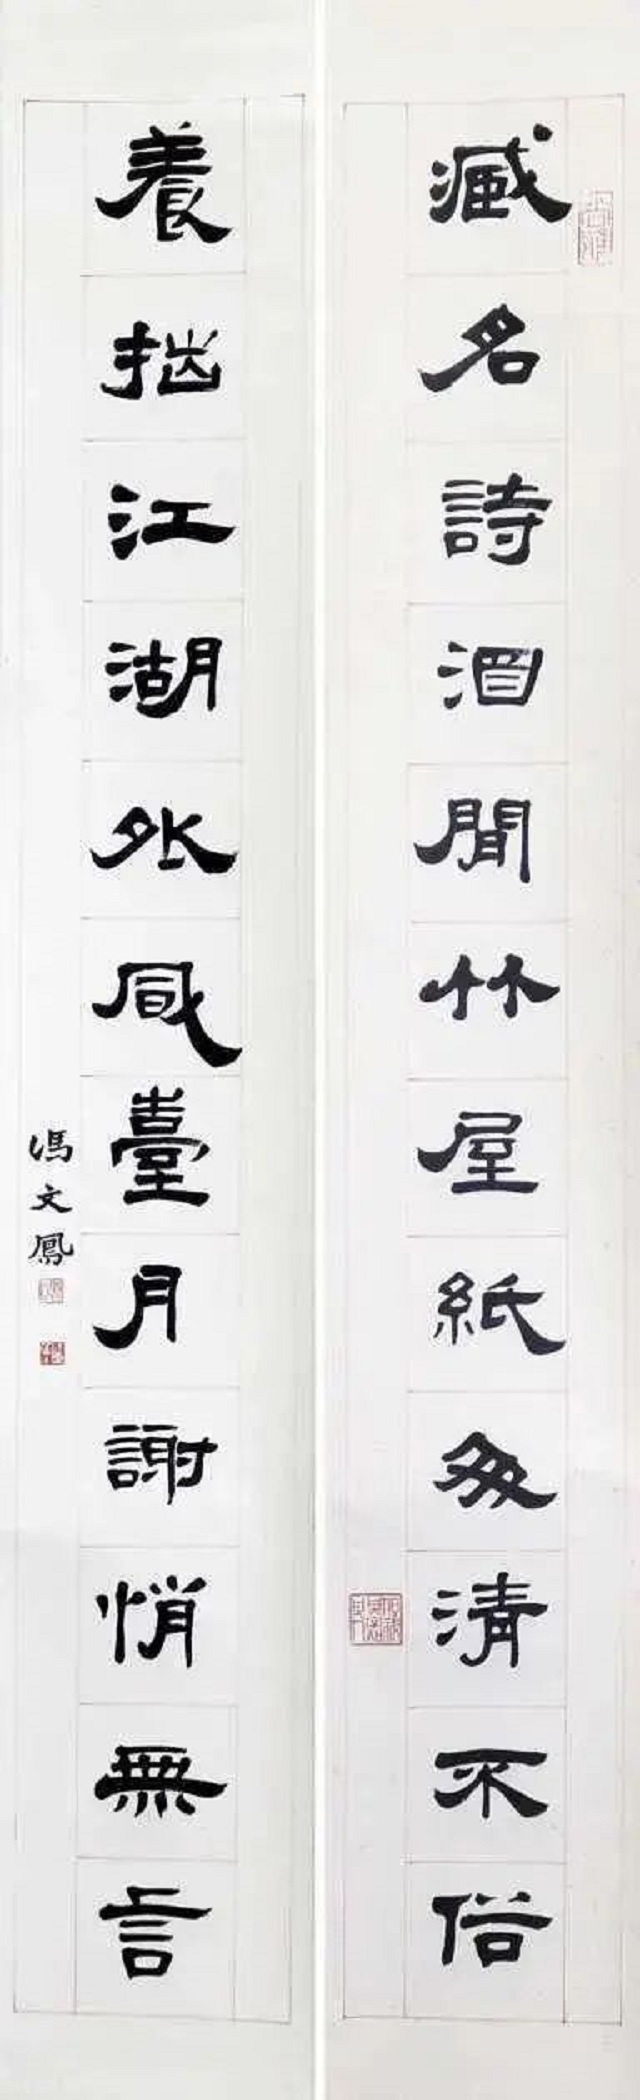 臧名詩酒閒竹屋紙囪清不俗
養拙江湖外風臺月謝悄無言
馮文鳳